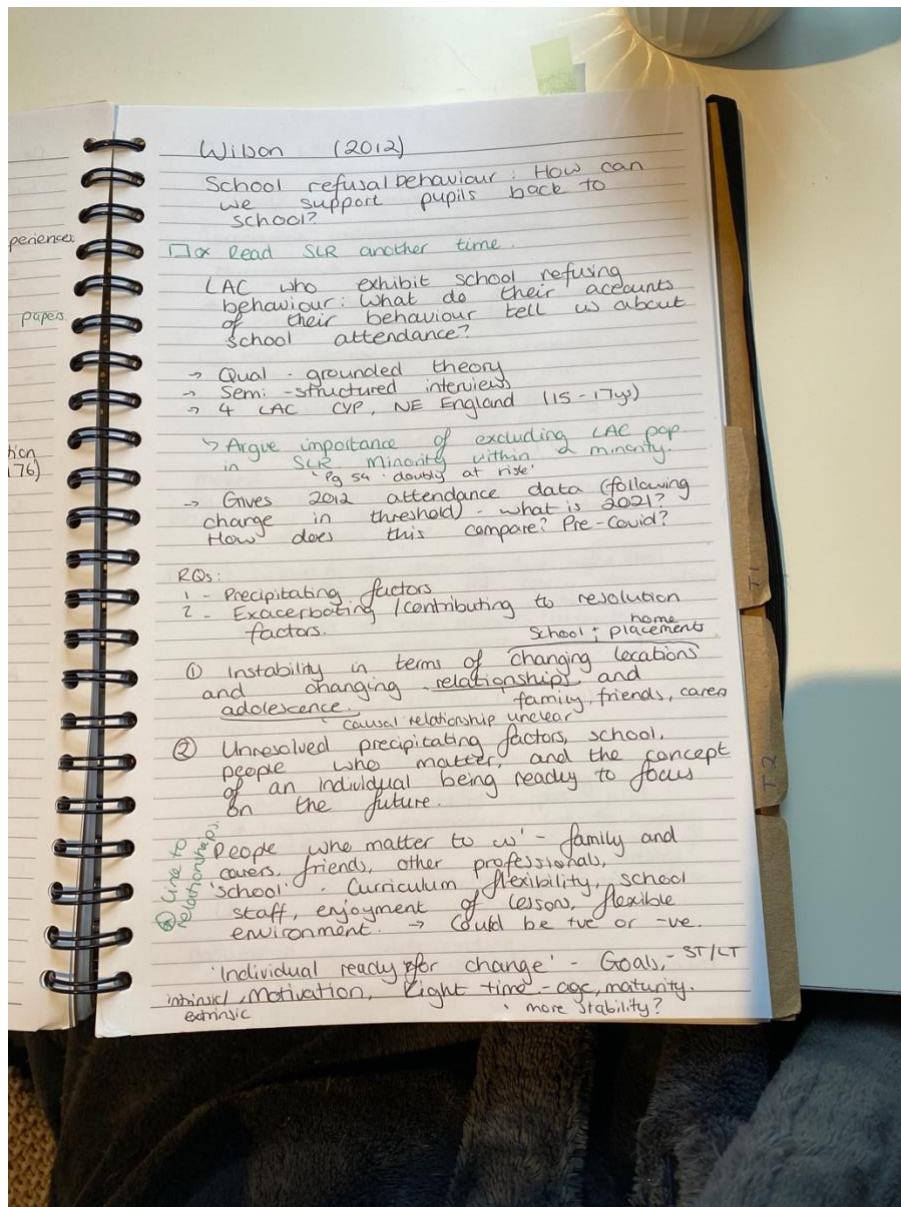 Wilson (2012)
School refusal behaviour : How can
we support pupils back to
school?
Read SLR another time.
LAC who exhibit school refusing
behaviour : What do their accounts
of their behaviour tell us about
school attendance?
→ Qual - grounded theory
→ Semi-structured interviews
→ 4 LAC CYP, NE England (15-17yrs)
↳ Argue importance of excluding LAC pop
in SLR. Minority within a minority.
'Pg 54 · doubly at risk'
→ Gives 2012 attendance data (following
change in threshold) - what is 2021?
How does this compare? Pre-Covid?
RQs:
1 - Precipitating factors
2 - Exacerbating / contributing to resolution
factors.
School + home placements
① Instability in terms of changing locations
and changing relationships and
family, friends, carers
adolescence.
causal relationship unclear
② Unresolved precipitating factors, school,
people who matter, and the concept
of an individual being ready to focus
on the future.
Link to
relationships
People who matter to us' - family and
carers, friends, other professionals,
'School' - Curriculum flexibility, school
staff, enjoyment of lessons, flexible
environment. → Could be +ve or -ve.
'Individual ready for change' - Goals, - ST/LT
intrinsic/ Motivation, Right time - age, maturity.
extrinsic
more stability?
periences
papers
76)
T1
T2